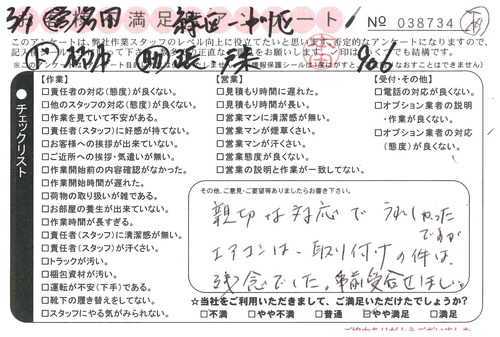 満足 ート
№ 038734
このアンケートは、弊社作業スタッフのレベル向上に役立てたいと思います。否定的なアンケートになりますので、
906
チェックリスト
【作業】
□責任者の対応(態度)が良くない。
□他のスタッフの対応(態度)が良くない。
□作業を見ていて不安がある。
□責任者(スタッフ)に好感が持てない。
□お客様への挨拶が出来ていない。
□ご近所への挨拶・気遣いが無い。
□作業開始前の内容確認がなかった。
□作業開始時間が遅れた。
□荷物の取り扱いが雑である。
□お部屋の養生が出来ていない。
□作業時間が長すぎる。
□責任者(スタッフ)に清潔感が無い。
□責任者(スタッフ)が汗くさい。
□トラックが汚い。
□梱包資材が汚い。
□運転が不安(下手)である。
□靴下の履き替えをしてない。
□スタッフにやる気がみられない。
【営業】
□見積もり時間に遅れた。
□見積もり時間が長い。
□営業マンに清潔感が無い。
□営業マンが煙草くさい。
□営業マンが汗くさい。
□営業態度が良くない。
□営業の説明と作業が一致してない。
【受付・その他】
□電話の対応が良くない。
□オプション業者の説明
・作業が良くない。
□オプション業者の対応
(態度)が良くない。
その他、ご意見・ご要望等ありましたらお書き下さい。
親切な対応で うれしかった
ですが
エアコンは、取り付けの件は、
残念でした。事前受合せほしい。
☆当社をご利用いただきまして、ご満足いただけたでしょうか?
□不満 □やや不満 □普通 □やや満足 □満足
ご協力ありがとうございました